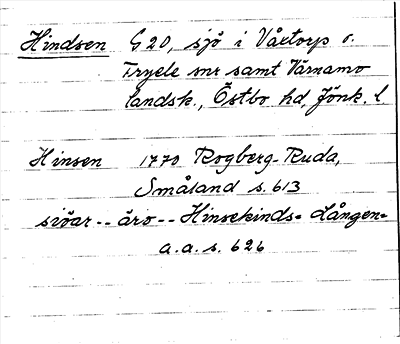 Hindsen G 20, sjö i Våxtorp o.
Tryele snr samt Värnamo
landsk., Östbo hd, Jönk. l
Hinsen 1770 Rogberg-Ruda,
Småland s. 613
siöar -- äro -- Hinsekinds= Lången=
a.a. s. 626